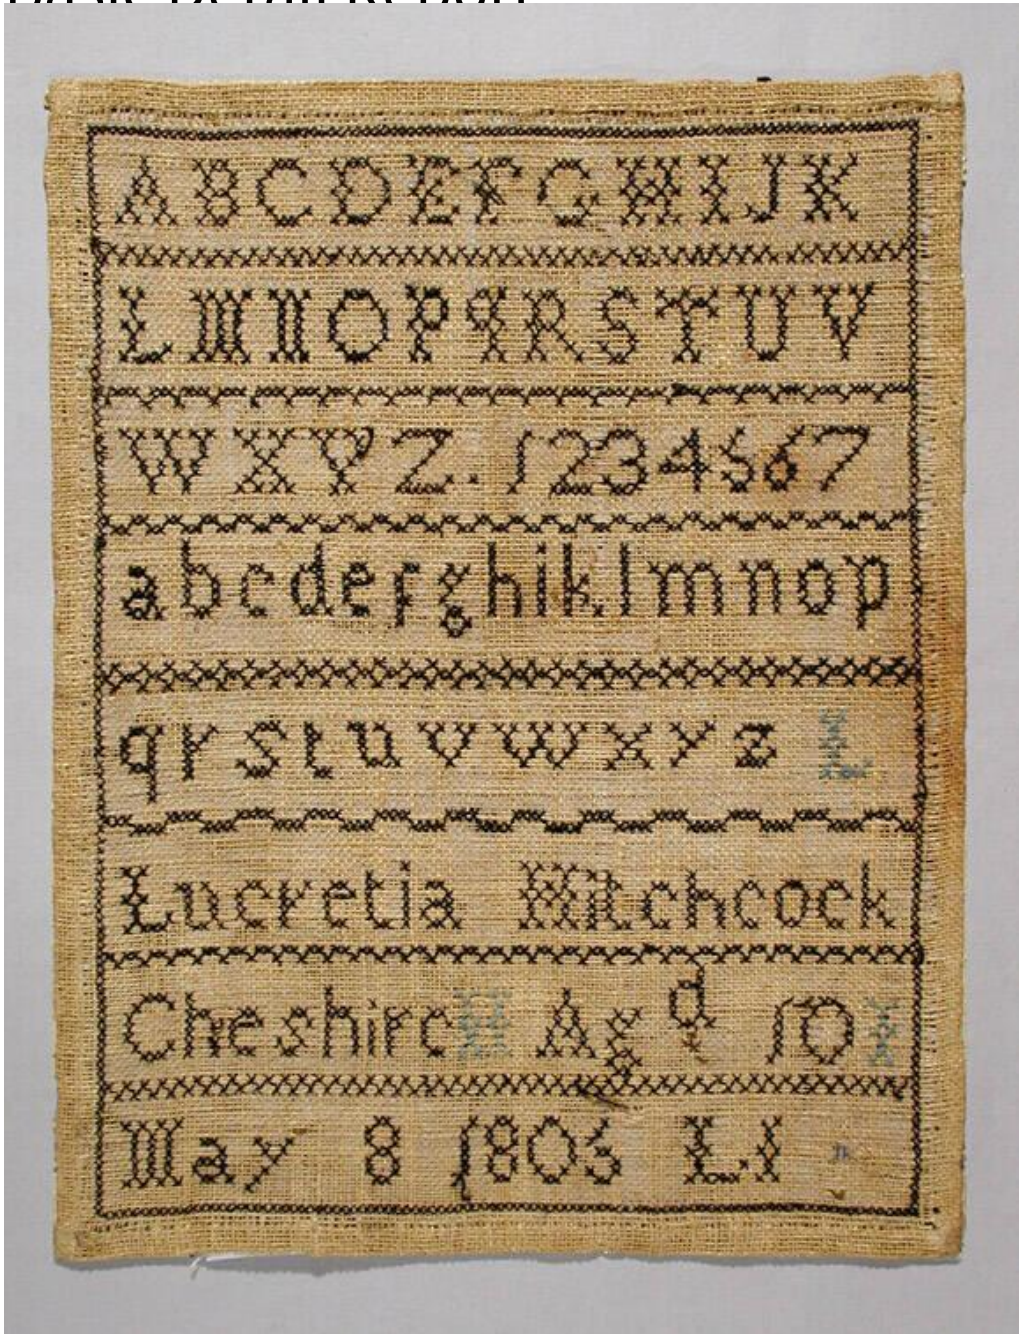 ABCDEFGHIJK
LMNOPqRSTUV
WXYZ. 1234567
abcdefghiklmnop
qrstuvwxyz L
Lucretia Hitchcock
Cheshire H Agd 10 I
May 8 1805 LI